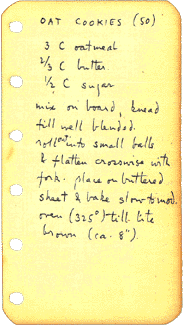 OAT COOKIES (50)
3 C oatmeal
2/3 C butter
1/2 C sugar
mix on board, knead
till well blended.
roll out into small balls
& flatten crosswise with
fork. place on buttered
sheet & bake slow to mod.
oven (325°) till lite
brown (ca. 8").